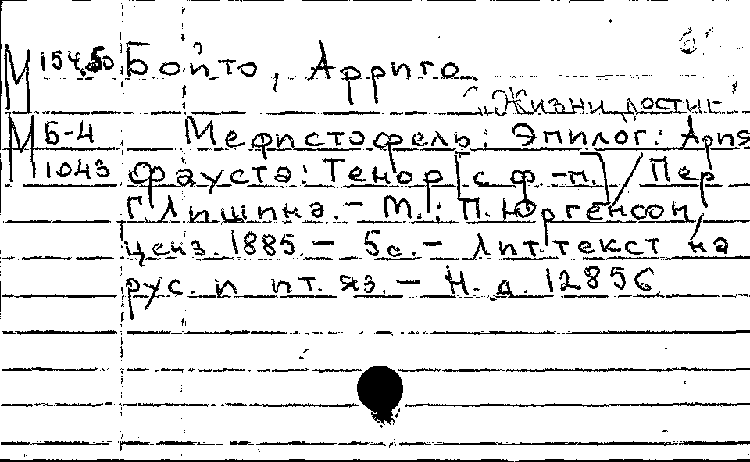 М 154.50 Бойто, Арриго
"Жизни достиг"
М Б-4 Мефистофель: Эпилог: Ария
1043 Фауста: Тенор [с ф.-п.] / Пер
Г. Лишина. – М.: П. Юргенсон,
ценз. 1885. – 5с. – Лит. текст на
рус. и ит. яз. – Н. д. 12856